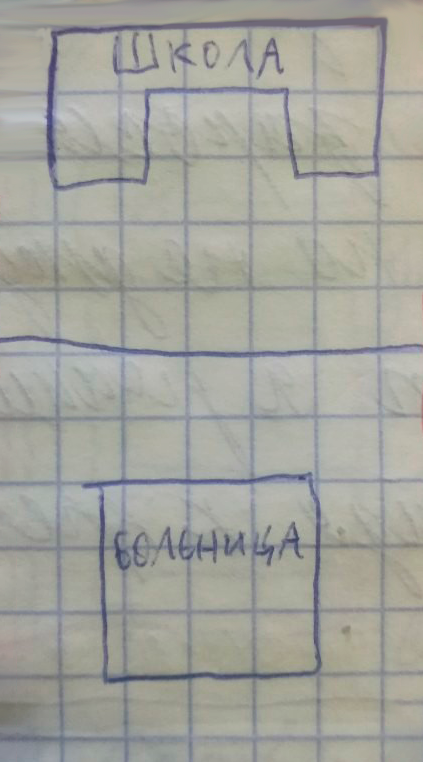 ШКОЛА
БОЛЬНИЦА